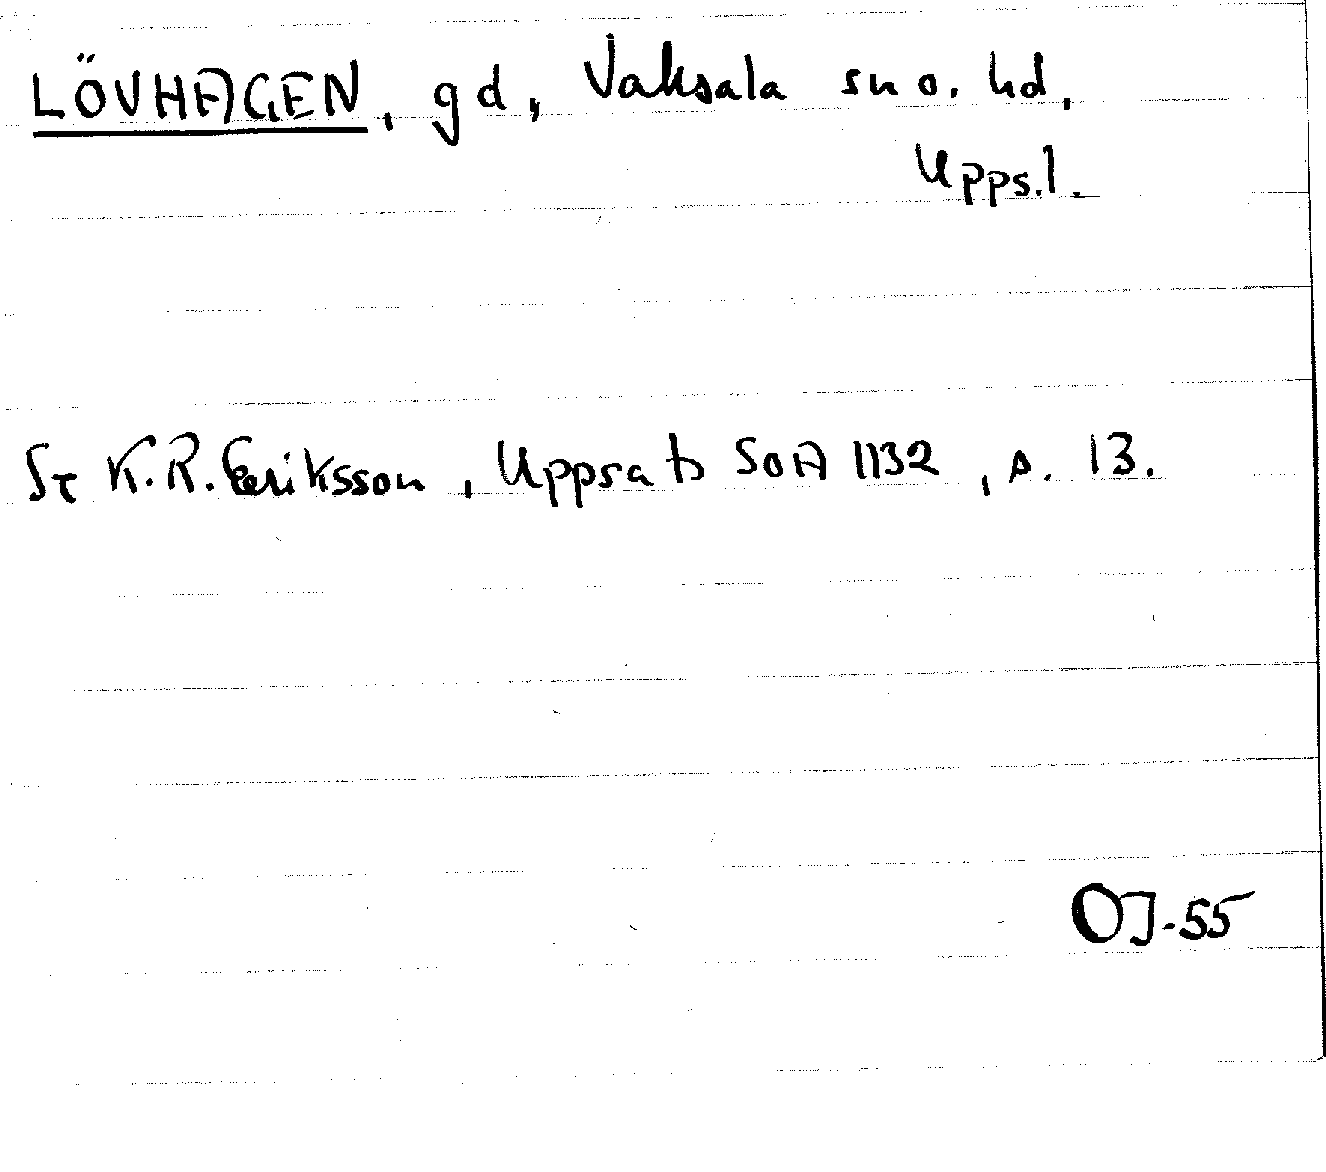 LÖVHAGEN, gd, Vaksala sn o. hd,
Upps.l.
St K.R. Eeriksson, Uppsats SOA 1132, s. 13.
OJ-55